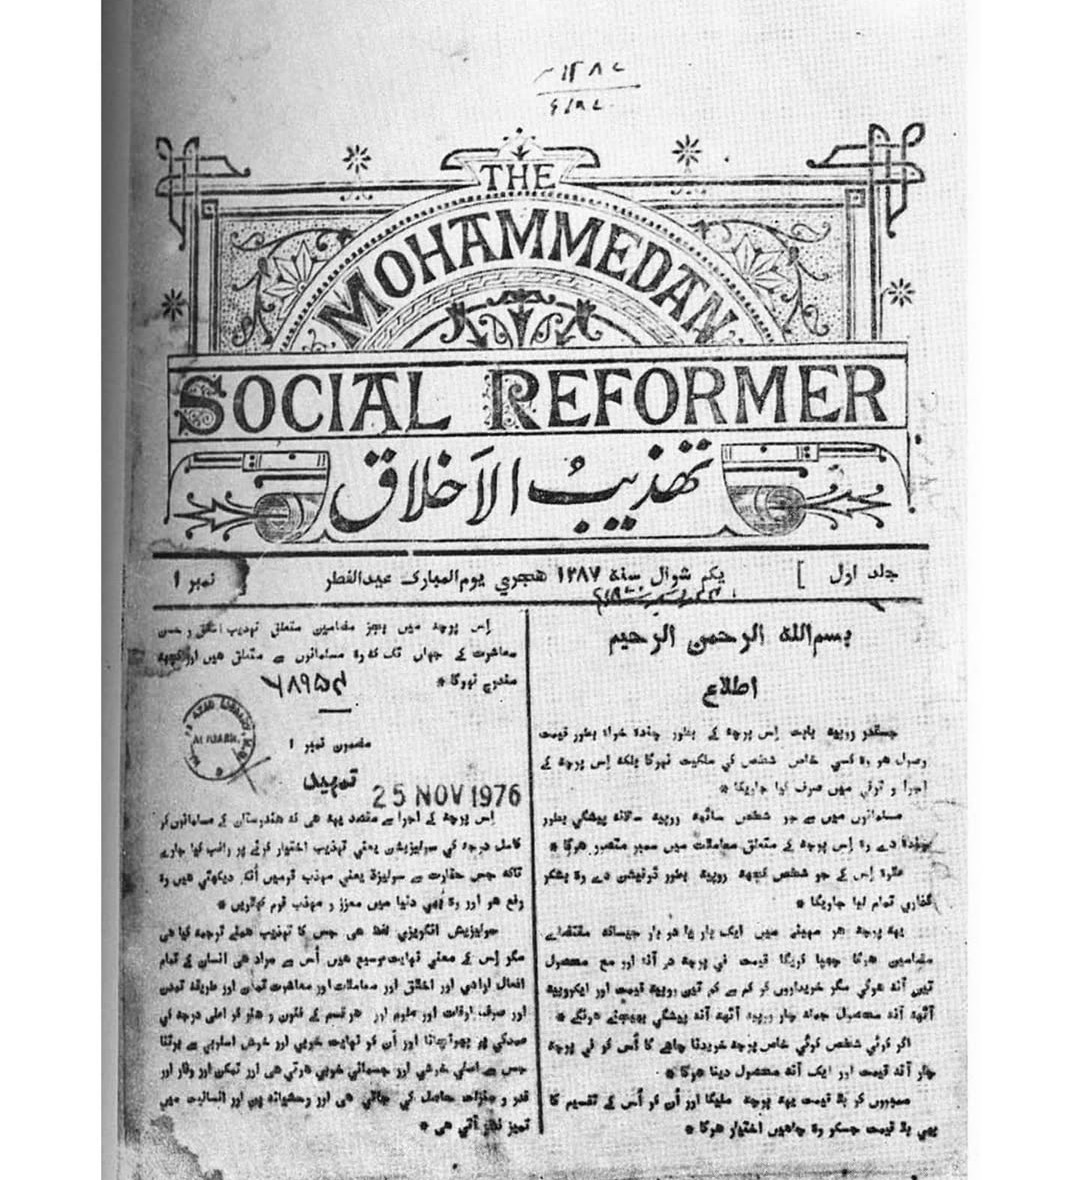 ١٢٨٧
THE
MOHAMMEDAN
SOCIAL REFORMER
تهذیبُ الاَخلاق
جلد اول ] یکم شوال سنه ١٢٨٧ هجري یوم المبارک عیدالفطر [ نمبر ١
بسم الله الرحمن الرحیم
اطلاع
جسقدر روپیه بابت اِس پرچه کے بطور چنده خواه بطور قیمت
وصول هو وه کسي خاص شخص کي ملکیت نهوگا بلکه اِس پرچه کے
اجرا و ترقي میں صرف کیا جاویگا *
مسلمانوں میں سے جو شخص ساٹهه روپیه سالانه پیشگي بطور
چنده دے وه اِس پرچه کے متعلق معاملات میں ممبر متصور هوگا *
علاوه اِس کے جو شخص کچهه روپیه بطور ڈونیشن دے وه بشکر
گذاري تمام لیا جاویگا *
یهه پرچه هر مهینے میں ایک بار یا دو بار جیسا که مقتضاے
مضامین هوگا چهپا کریگا قیمت في پرچه
تین آنه هوگي مگر خریداروں کو کم سے کم تین روپیه قیمت اور ایکروپیه
آٹهه آنه محصول جمله چار روپیه آٹهه آنه پیشگي بهیجنے هونگے *
اگر کوئي شخص کوئي خاص پرچه خریدنا چاهے گا تُو اُس کو في پرچه
چار آنه قیمت اور ایک آنه محصول دینا هوگا *
ممبروں کو بلا قیمت یهه پرچه ملیگا اور اُن کو اُس کے تقسیم کا
بهي بلا قیمت جسکو وه چاهیں اختیار هوگا *
اِس پرچه میں بجز مضامین متعلق تهذیب اخلاق و حسن
معاشرت کے جهاں تک که وه مسلمانوں سے متعلق هیں اور کچهه
مندرج نهوگا *
مضمون نمبر ١
تمهید
25 NOV 1976
اِس پرچه کے اجرا سے مقصد یهه هی که هندوستان کے مسلمانوں کو
کامل درجه کي سولیزیشن یعني تهذیب اختیار کرنے پر راغب کیا جاوے
تاکه جس حقارت سے سولیزڈ یعني مهذب قومیں اُنکو دیکهتي هیں وه
رفع هو اور وه بُهي دنیا میں معزز و مهذب قوم کهلاویں *
سولیزیشن انگریزي لفظ هی جس کا تهذیب همنے ترجمه کیا هی
مگر اِس کے معني نهایت وسیع هیں اُس سے مراد هی انسان کے تمام
افعال ارادي اور اخلاق اور معاملات اور معاشرت تمدن اور طریقه تمدن
اور صرف اوقات اور علوم اور هر قسم کے فنون و هنر کو اعلی درجه کي
عمدگي پر پهونچانا اور اُن کو نهایت خوبي اور خوش اسلوبي سے برتنا
جس سے اصلي خوشي اور جسماني خوبي هوتي هی اور تمکن اور وقار اور
قدر و منزلت حاصل کي جاتي هی اور وحشیانه پن اور انسانیت میں
تمیز نظر آتي هی *